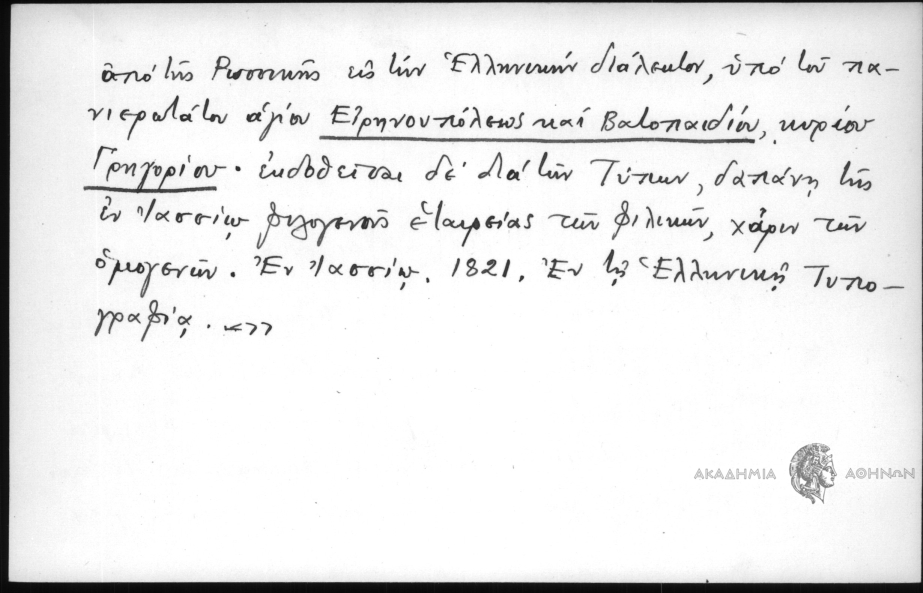 ἀπό τῆς Ρωσσικῆς εἰς τήν Ἑλληνικήν διάλεκτον, ὑπό τοῦ πα-
νιερωτάτου ἁγίου Εἰρηνουπόλεως καί Βατοπαιδίου, κυρίου
Γρηγορίου· ἐκδοθεῖσαι δέ διά τῶν Τύπων, δαπάνῃ τῆς
ἐν Ἰασσίῳ φιλογενοῦς ἑταιρείας τῶν φιλικῶν, χάριν τῶν
ὁμογενῶν. Ἐν Ἰασσίῳ. 1821. Ἐν τῇ Ἑλληνικῇ Τυπο-
γραφίᾳ.
ΑΚΑΔΗΜΙΑ ΑΘΗΝΩΝ